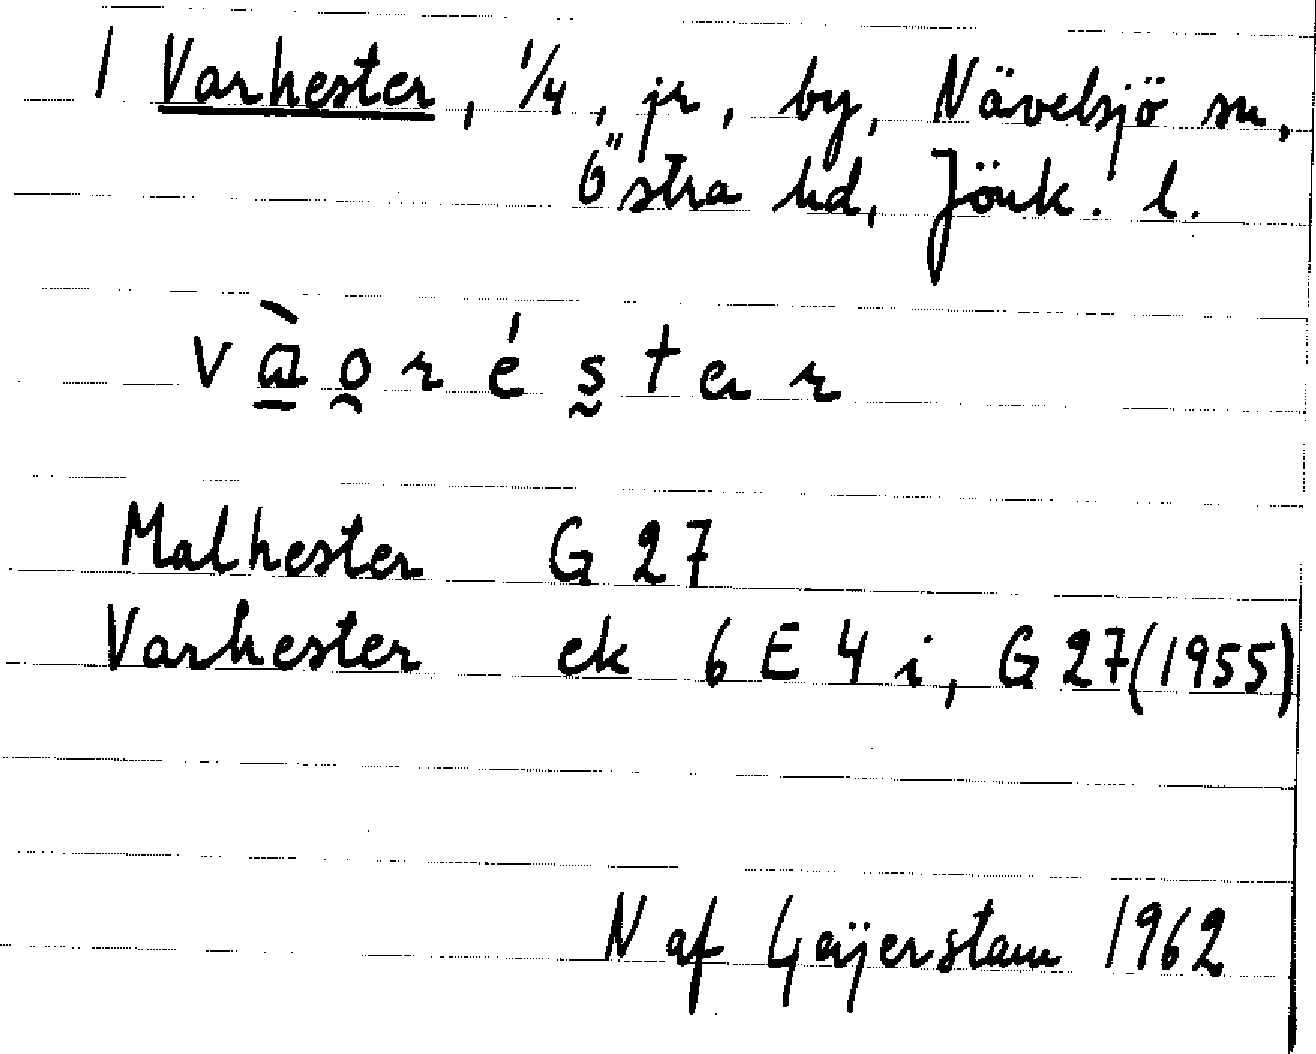 1 Varhester, 1/4, jr, by, Nävelsjö sn,
Östra hd, Jönk. l.
v à̱ o̯ r é s̰ t ə r
Malhester G 27
Varhester ek 6 E 4 i, G 27 (1955)
N af Geijerstam 1962